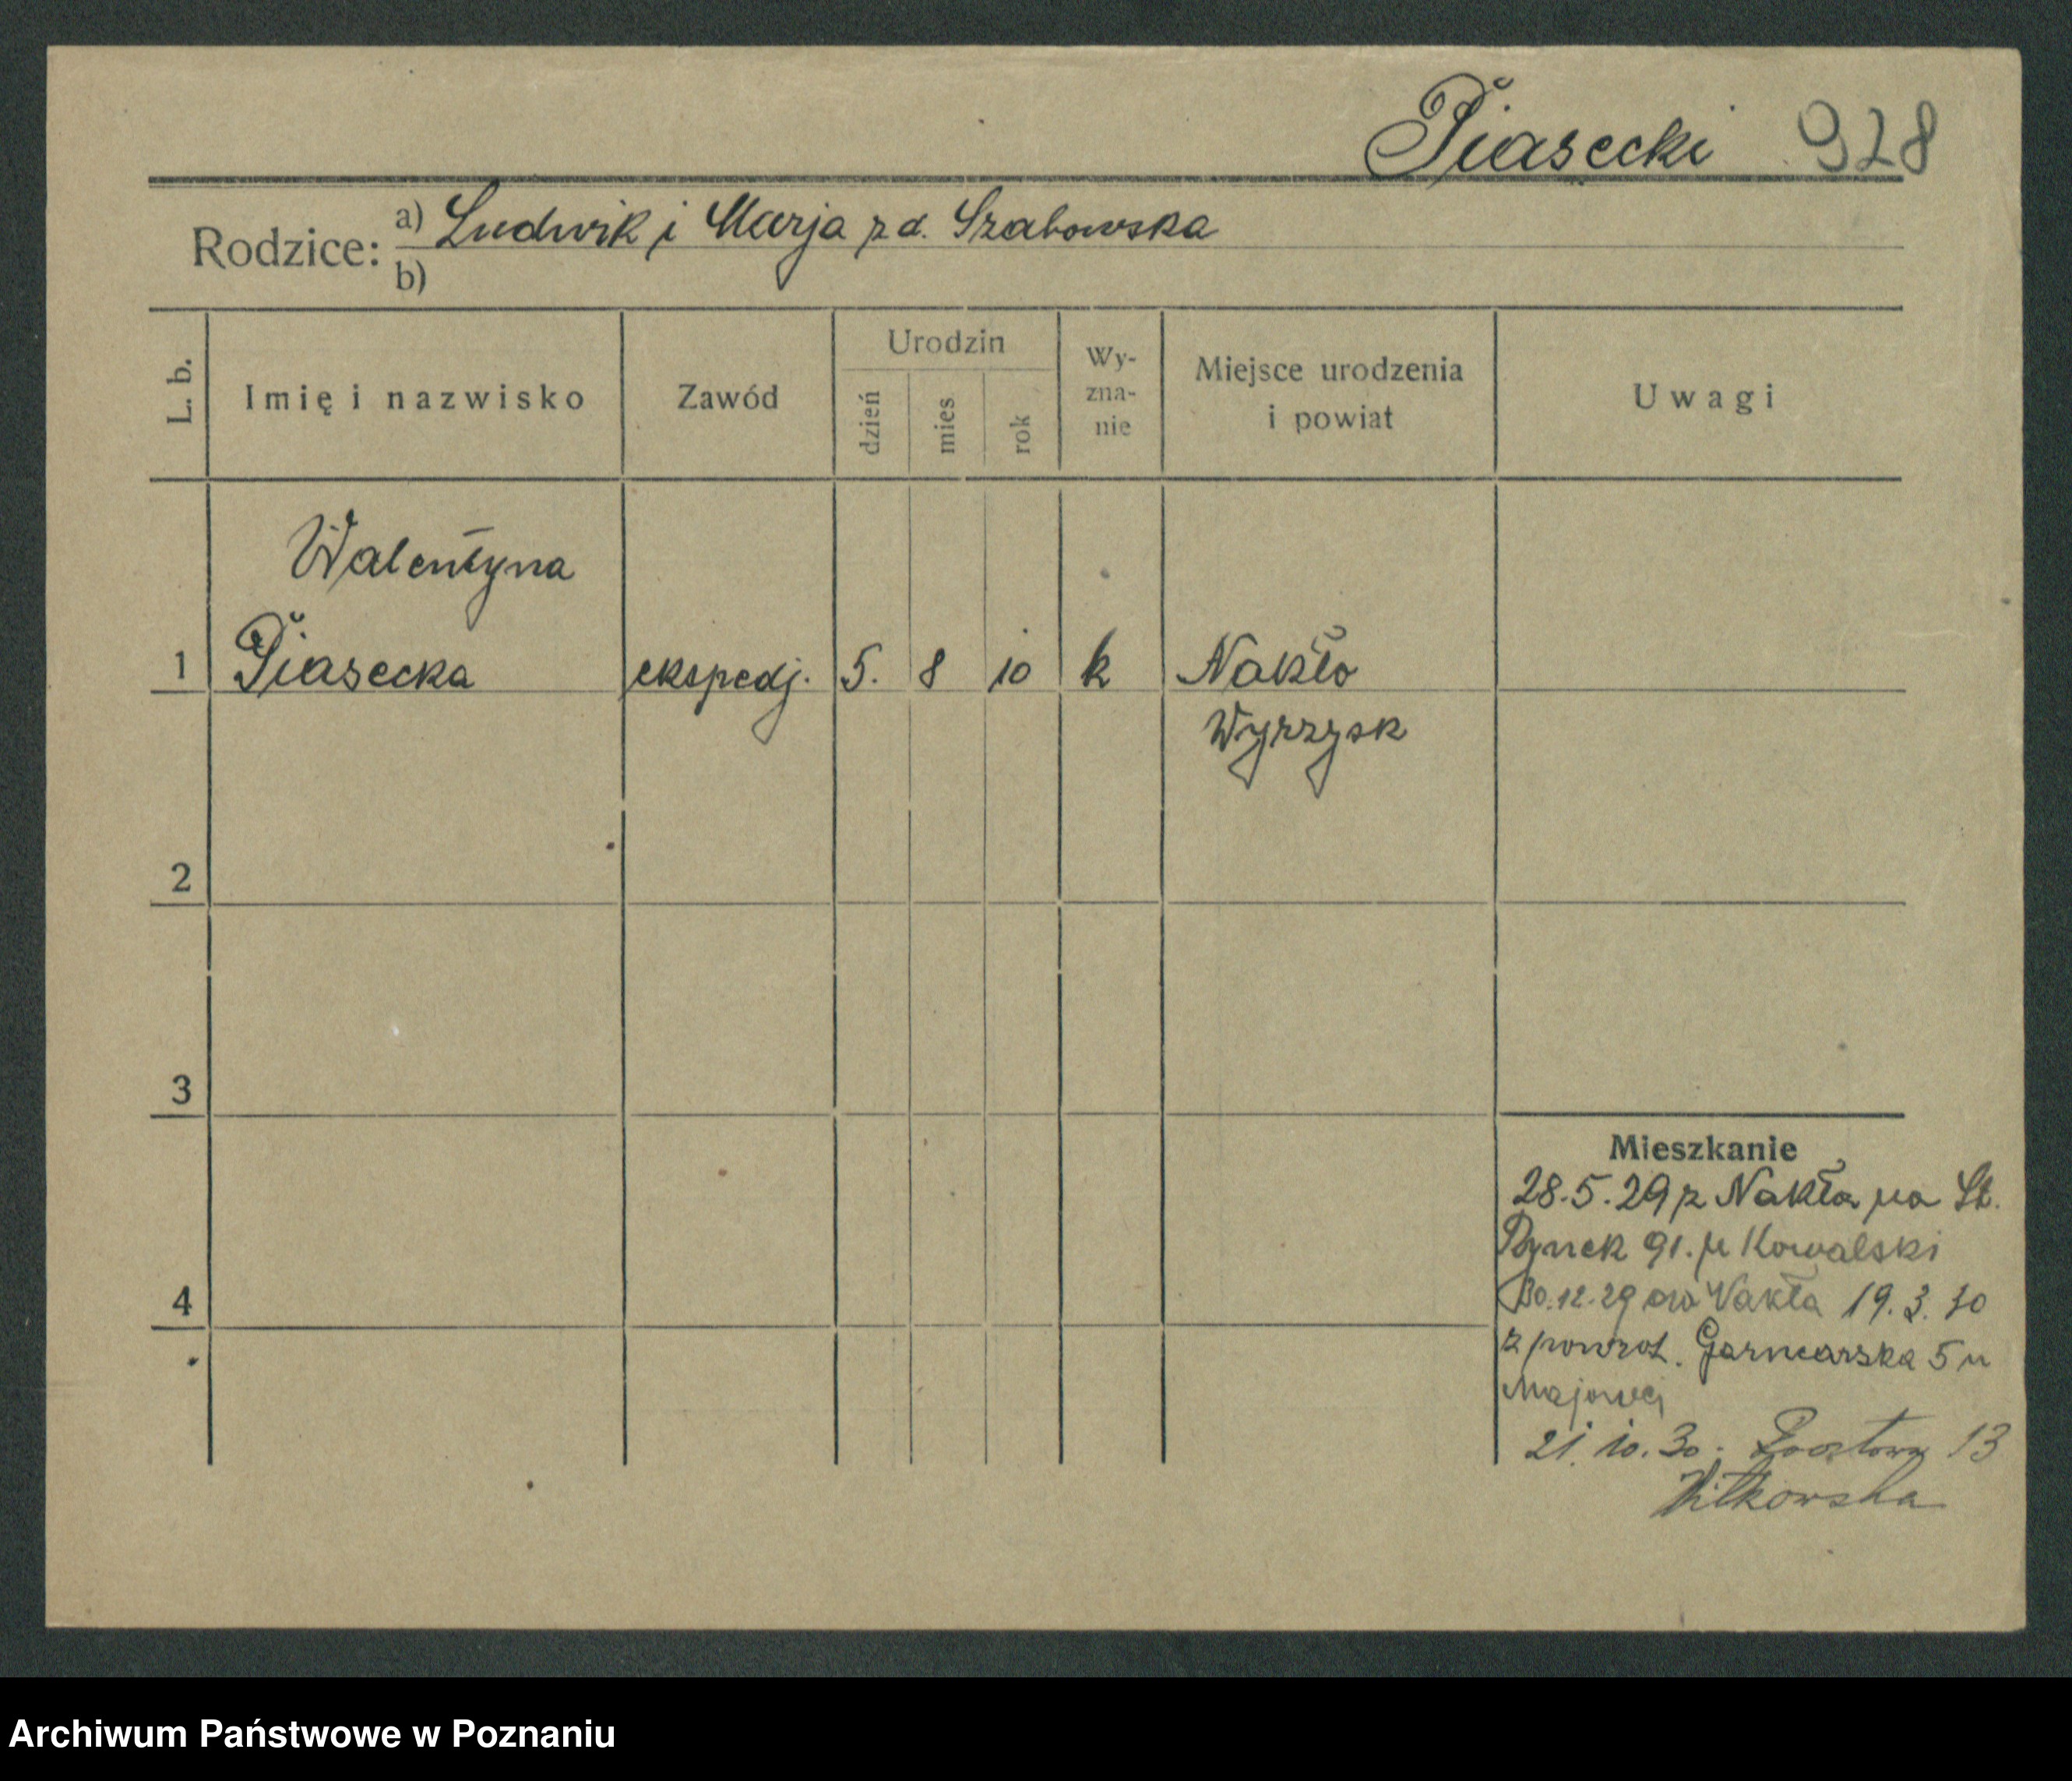 Piasecki 928
Rodzice: a) Ludwik i Marja z d. Szabowska
b)
L. b. Imię i nazwisko Zawód Urodzin dzień mies rok Wy-zna-nie Miejsce urodzenia i powiat Uwagi
Walentyna
1 Piasecka ekspedj. 5. 8 10 k Nakło
Wyrzysk
2
3
Mieszkanie
28.5.29 z Nakła na St.
Rynek 91. u Kowalski
30.12.29 do Nakła 19.3.30
4
z powrot. Garncarska 5 u
Majowej
21.10.30. 13
Witkowska
Archiwum Państwowe w Poznaniu